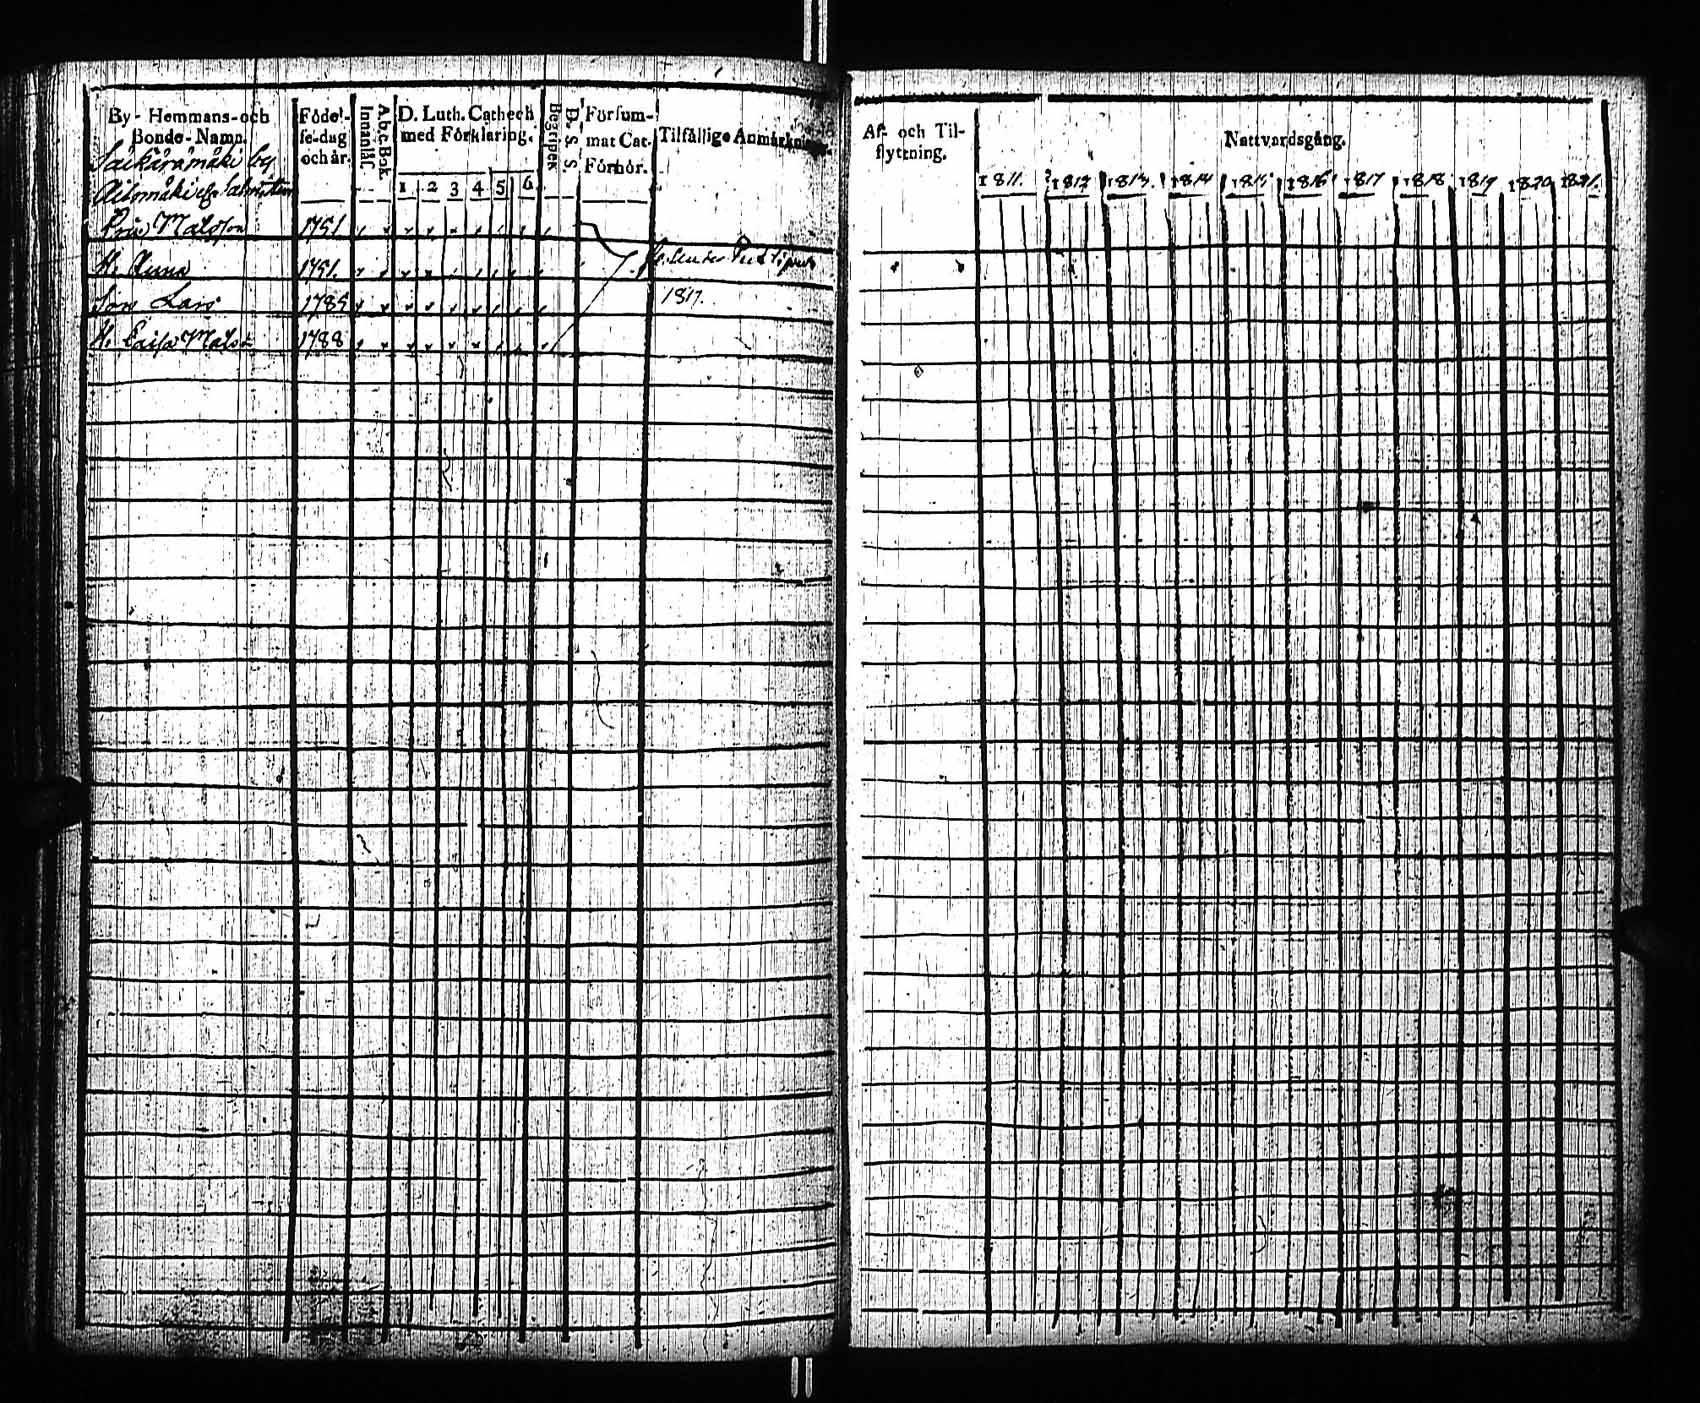 By - Hemmans - och
Bonde - Namn.
Födel-
se-dag
och år.
Innanläs.
A. b. c. Bok.
D. Luth. Cathech
med Förklaring.
1 2 3 4 5 6
Begripen
D. S. S.
Försum-
mat Cat.
Förhör.
Tilfällige Anmärkningar.
by
Matsson 1751
H. Anna 1751.
Son Lars 1785
1817.
H. Caisa Matsd: 1788
Af- och Til-
flyttning.
Nattvardsgång.
1811. 1812 1813. 1814 1815 1816 1817 1818 1819 1820 1821.